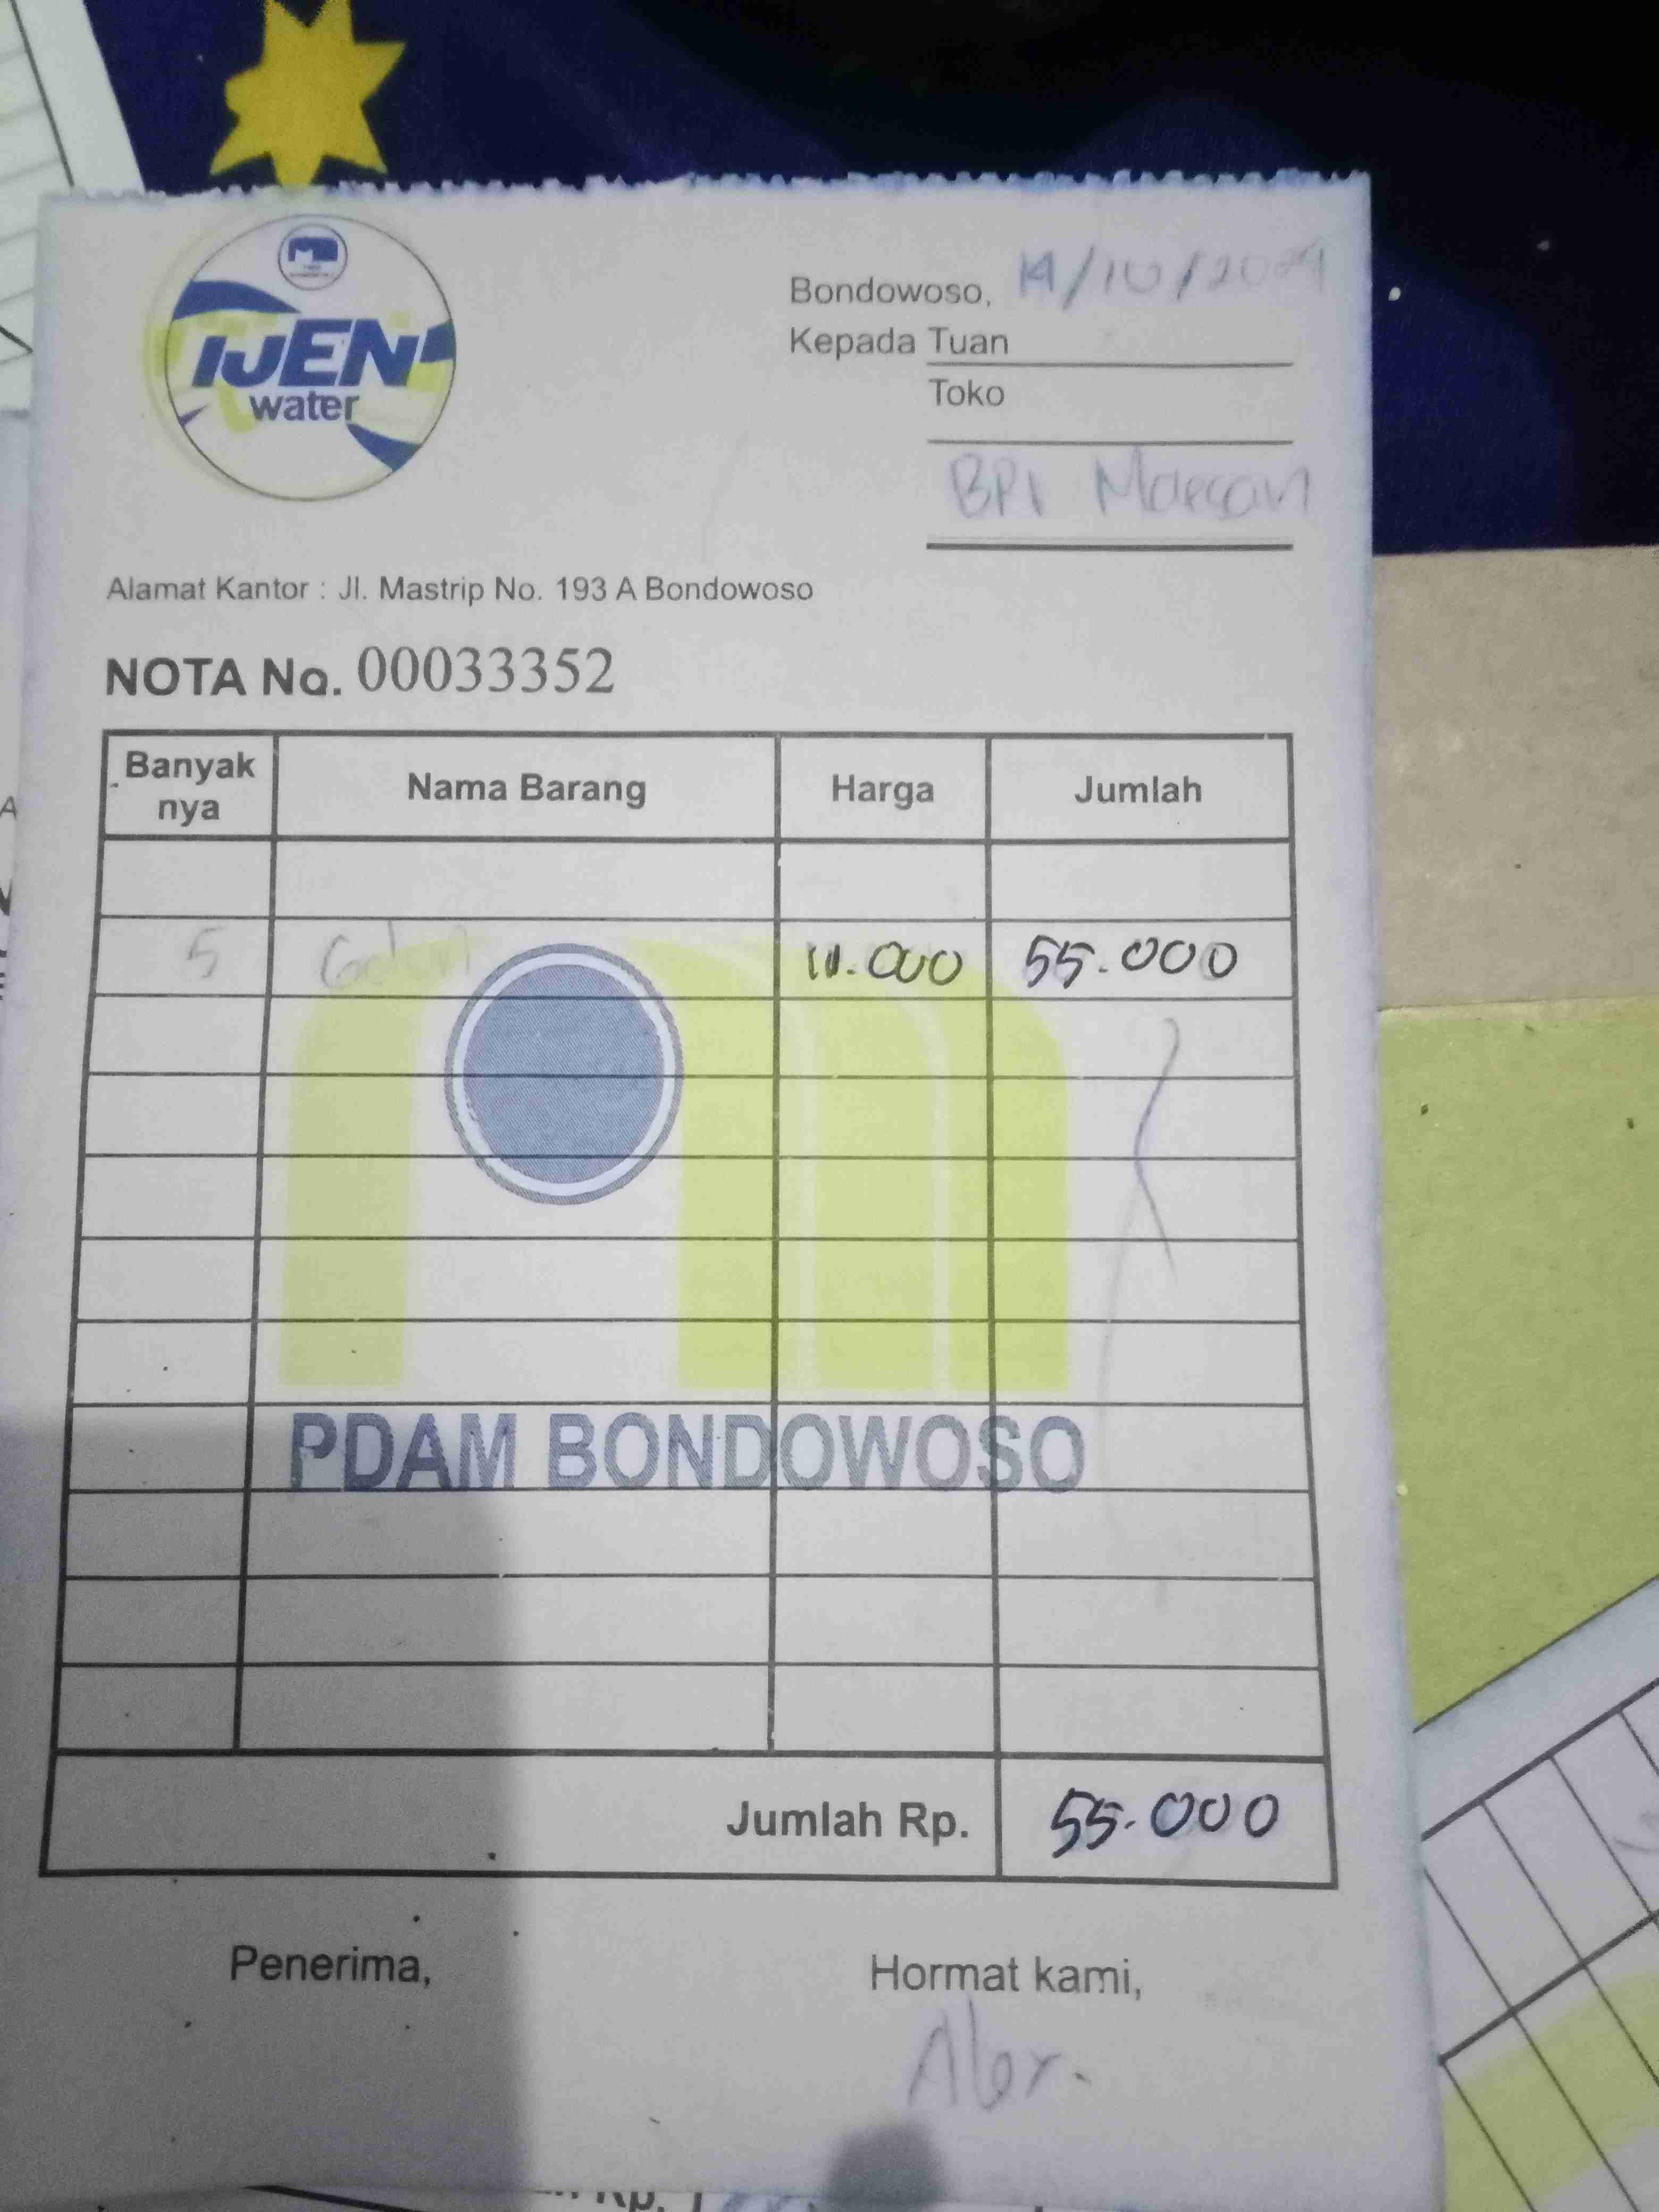 IJEN
water
Bondowoso, 14/10/2024
Kepada Tuan
Toko
BPI Maesan
Alamat Kantor : Jl. Mastrip No. 193 A Bondowoso
NOTA No. 00033352
Banyak nya Nama Barang Harga Jumlah
5 Galon 11.000 55.000
PDAM BONDOWOSO
Jumlah Rp. 55.000
Penerima, Hormat kami,
Alex.